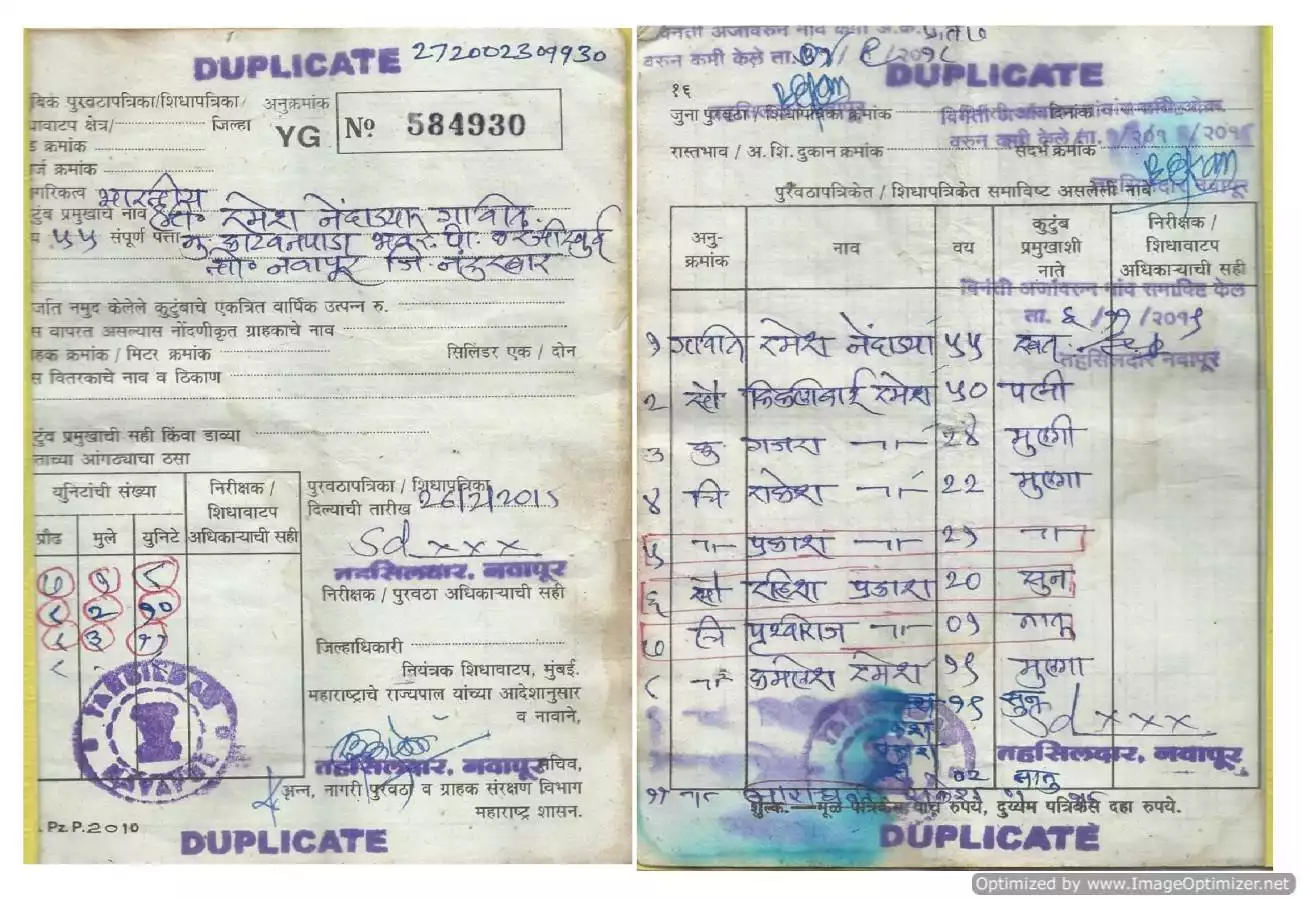 DUPLICATE 272002309930
बिक पुरवठापत्रिका/शिधापत्रिका अनुक्रमांक
YG Nº 584930
धावाटप क्षेत्र/ जिल्हा
ड क्रमांक
र्ज क्रमांक
गरिकत्व भारतीय
टुंब प्रमुखाचे नाव रमेश नेंदाड्या गावीत
य ५५ संपूर्ण पत्ता मु. काटवनपाडा
ता० नवापूर जि. नंदुरबार
र्जात नमुद केलेले कुटुंबाचे एकत्रित वार्षिक उत्पन्न रु.
स वापरत असल्यास नोंदणीकृत ग्राहकाचे नाव
हक क्रमांक / मिटर क्रमांक सिलिंडर एक / दोन
स वितरकाचे नाव व ठिकाण
टुंव प्रमुखाची सही किंवा डाव्या
ताच्या आंगठ्याचा ठसा
युनिटांची संख्या
निरीक्षक / शिधावाटप अधिकाऱ्याची सही
प्रौढ मुले युनिटे
७ १ ८
८ २ १०
८ ३ ११
८
पुरवठापत्रिका / शिधापत्रिका
दिल्याची तारीख 26/2/2015
Sd xxx
तहसिलदार, नवापूर
निरीक्षक / पुरवठा अधिकाऱ्याची सही
जिल्हाधिकारी
नियंत्रक शिधावाटप, मुंबई.
महाराष्ट्राचे राज्यपाल यांच्या आदेशानुसार
व नावाने,
तहसिलदार, नवापूर
सचिव,
अन्न, नागरी पुरवठा व ग्राहक संरक्षण विभाग
महाराष्ट्र शासन.
Pz P.2010
DUPLICATE
विनंती अर्जावरुन नाव कमी
वरुन कमी केले ता.
DUPLICATE
१६
जुना पुरवठा / शिधापत्रिका क्रमांक दिनांक
वरुन कमी केले ता.
रास्तभाव / अ. शि. दुकान क्रमांक संदर्भ क्रमांक
तहसिलदार नवापूर
पुरवठापत्रिकेत / शिधापत्रिकेत समाविष्ट असलेली नावे
अनु-क्रमांक नाव वय कुटुंब प्रमुखाशी नाते निरीक्षक / शिधावाटप अधिकाऱ्याची सही
विनंती अर्जावरुन नांव समाविष्ट केल
ता. ६/११/२०१९
१ गावीत रमेश नेंदाड्या ५५ स्वत:
तहसिलदार नवापूर
२ सौ रमेश ५० पत्नी
३ कु गजरा -"- २४ मुलगी
४ चि राकेश -"- २२ मुलगा
५ -"- प्रकाश -"- २१ -"-
६ सौ प्रकाश २० सुन
७ चि पृथ्वीराज -"- ०१ नातू
८ -"- कमलेश रमेश १९ मुलगा
१९ सुन
Sd xxx
तहसिलदार, नवापूर
०२ नातु
११ -"-
शुल्क.—मूळ पत्रिकेस पाच रुपये, दुय्यम पत्रिकेस दहा रुपये.
DUPLICATE
Optimized by www.ImageOptimizer.net